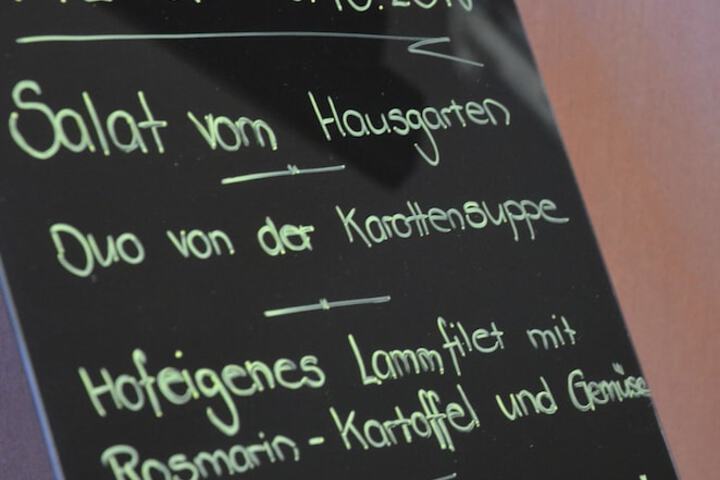 Salat vom Hausgarten
Duo von der Karottensuppe
Hofeigenes Lammfilet mit
Rosmarin - Kartoffel und Gemüse